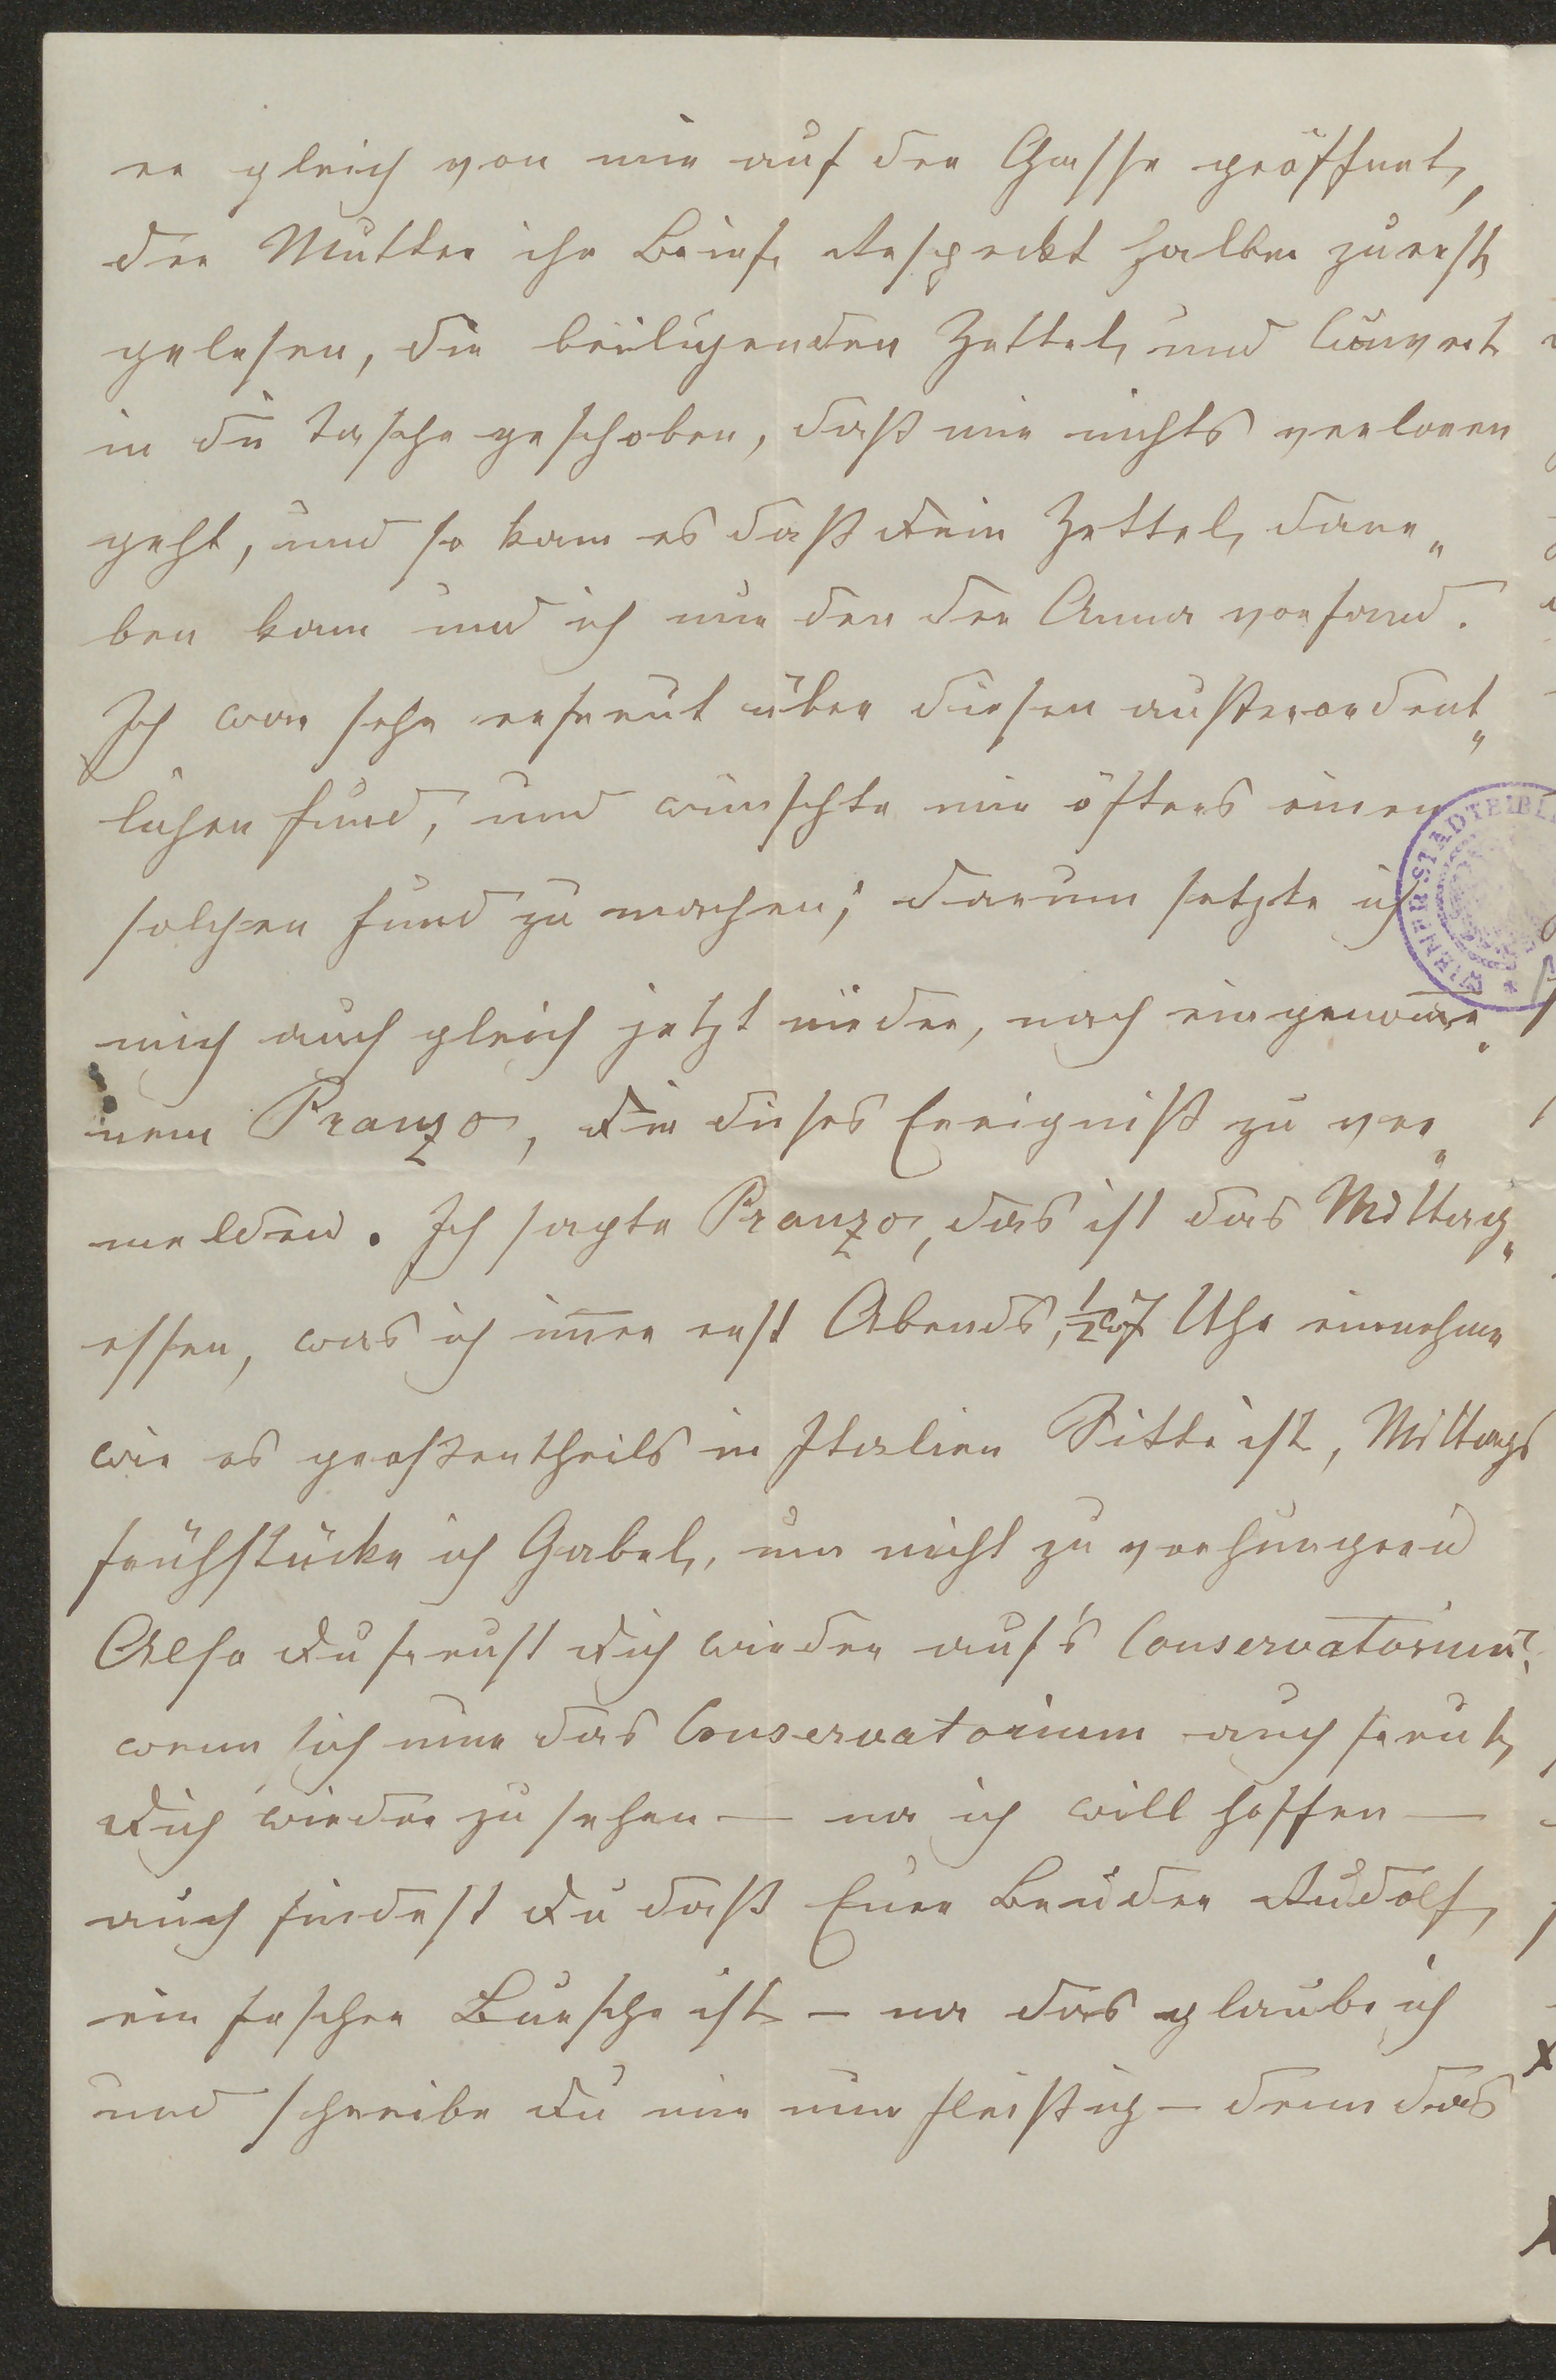 er gleich von mir auf der Gasse geöffnet,
der Mutter ihr Brief Respeckt halber zuerst
gelesen, die beiligenden Zettel und Couvert
in die Tasche geschoben, daß mir nichts verloren
geht, und so kam es daß Dein Zettel dane„
ben kam und ich nur den der Anna vorfand.
Ich war sehr erfreut über diesen außerordent„
lichen Fund, und wünschte mir öfters einen
solchen Fund zu machen; darum setzte ich
mich auch gleich jetzt nieder, nach eingenom̅e„
nem Pranzo, Dir dieses Ereigniß zu ver„
melden. Ich sagte Pranzo, das ist das Mittag„
essen, was ich im̅er erst Abends, ½ 7 Uhr einnehme
wie es großentheils in Italien Sitte ist, Mittags
frühstücke ich Gabel, um nicht zu verhungern
Also Du freust Dich wieder auf's Conservatorium,
wenn sich nur das Conservatorium auch freut,
Dich wieder zu sehen — na ich will hoffen —
auch findest Du daß Euer Bruder Rudolf,
ein fescher Bursche ist — na das glaube ich
und schreibe Du mir nur fleißig — denn das
WIENER STADTBIBL